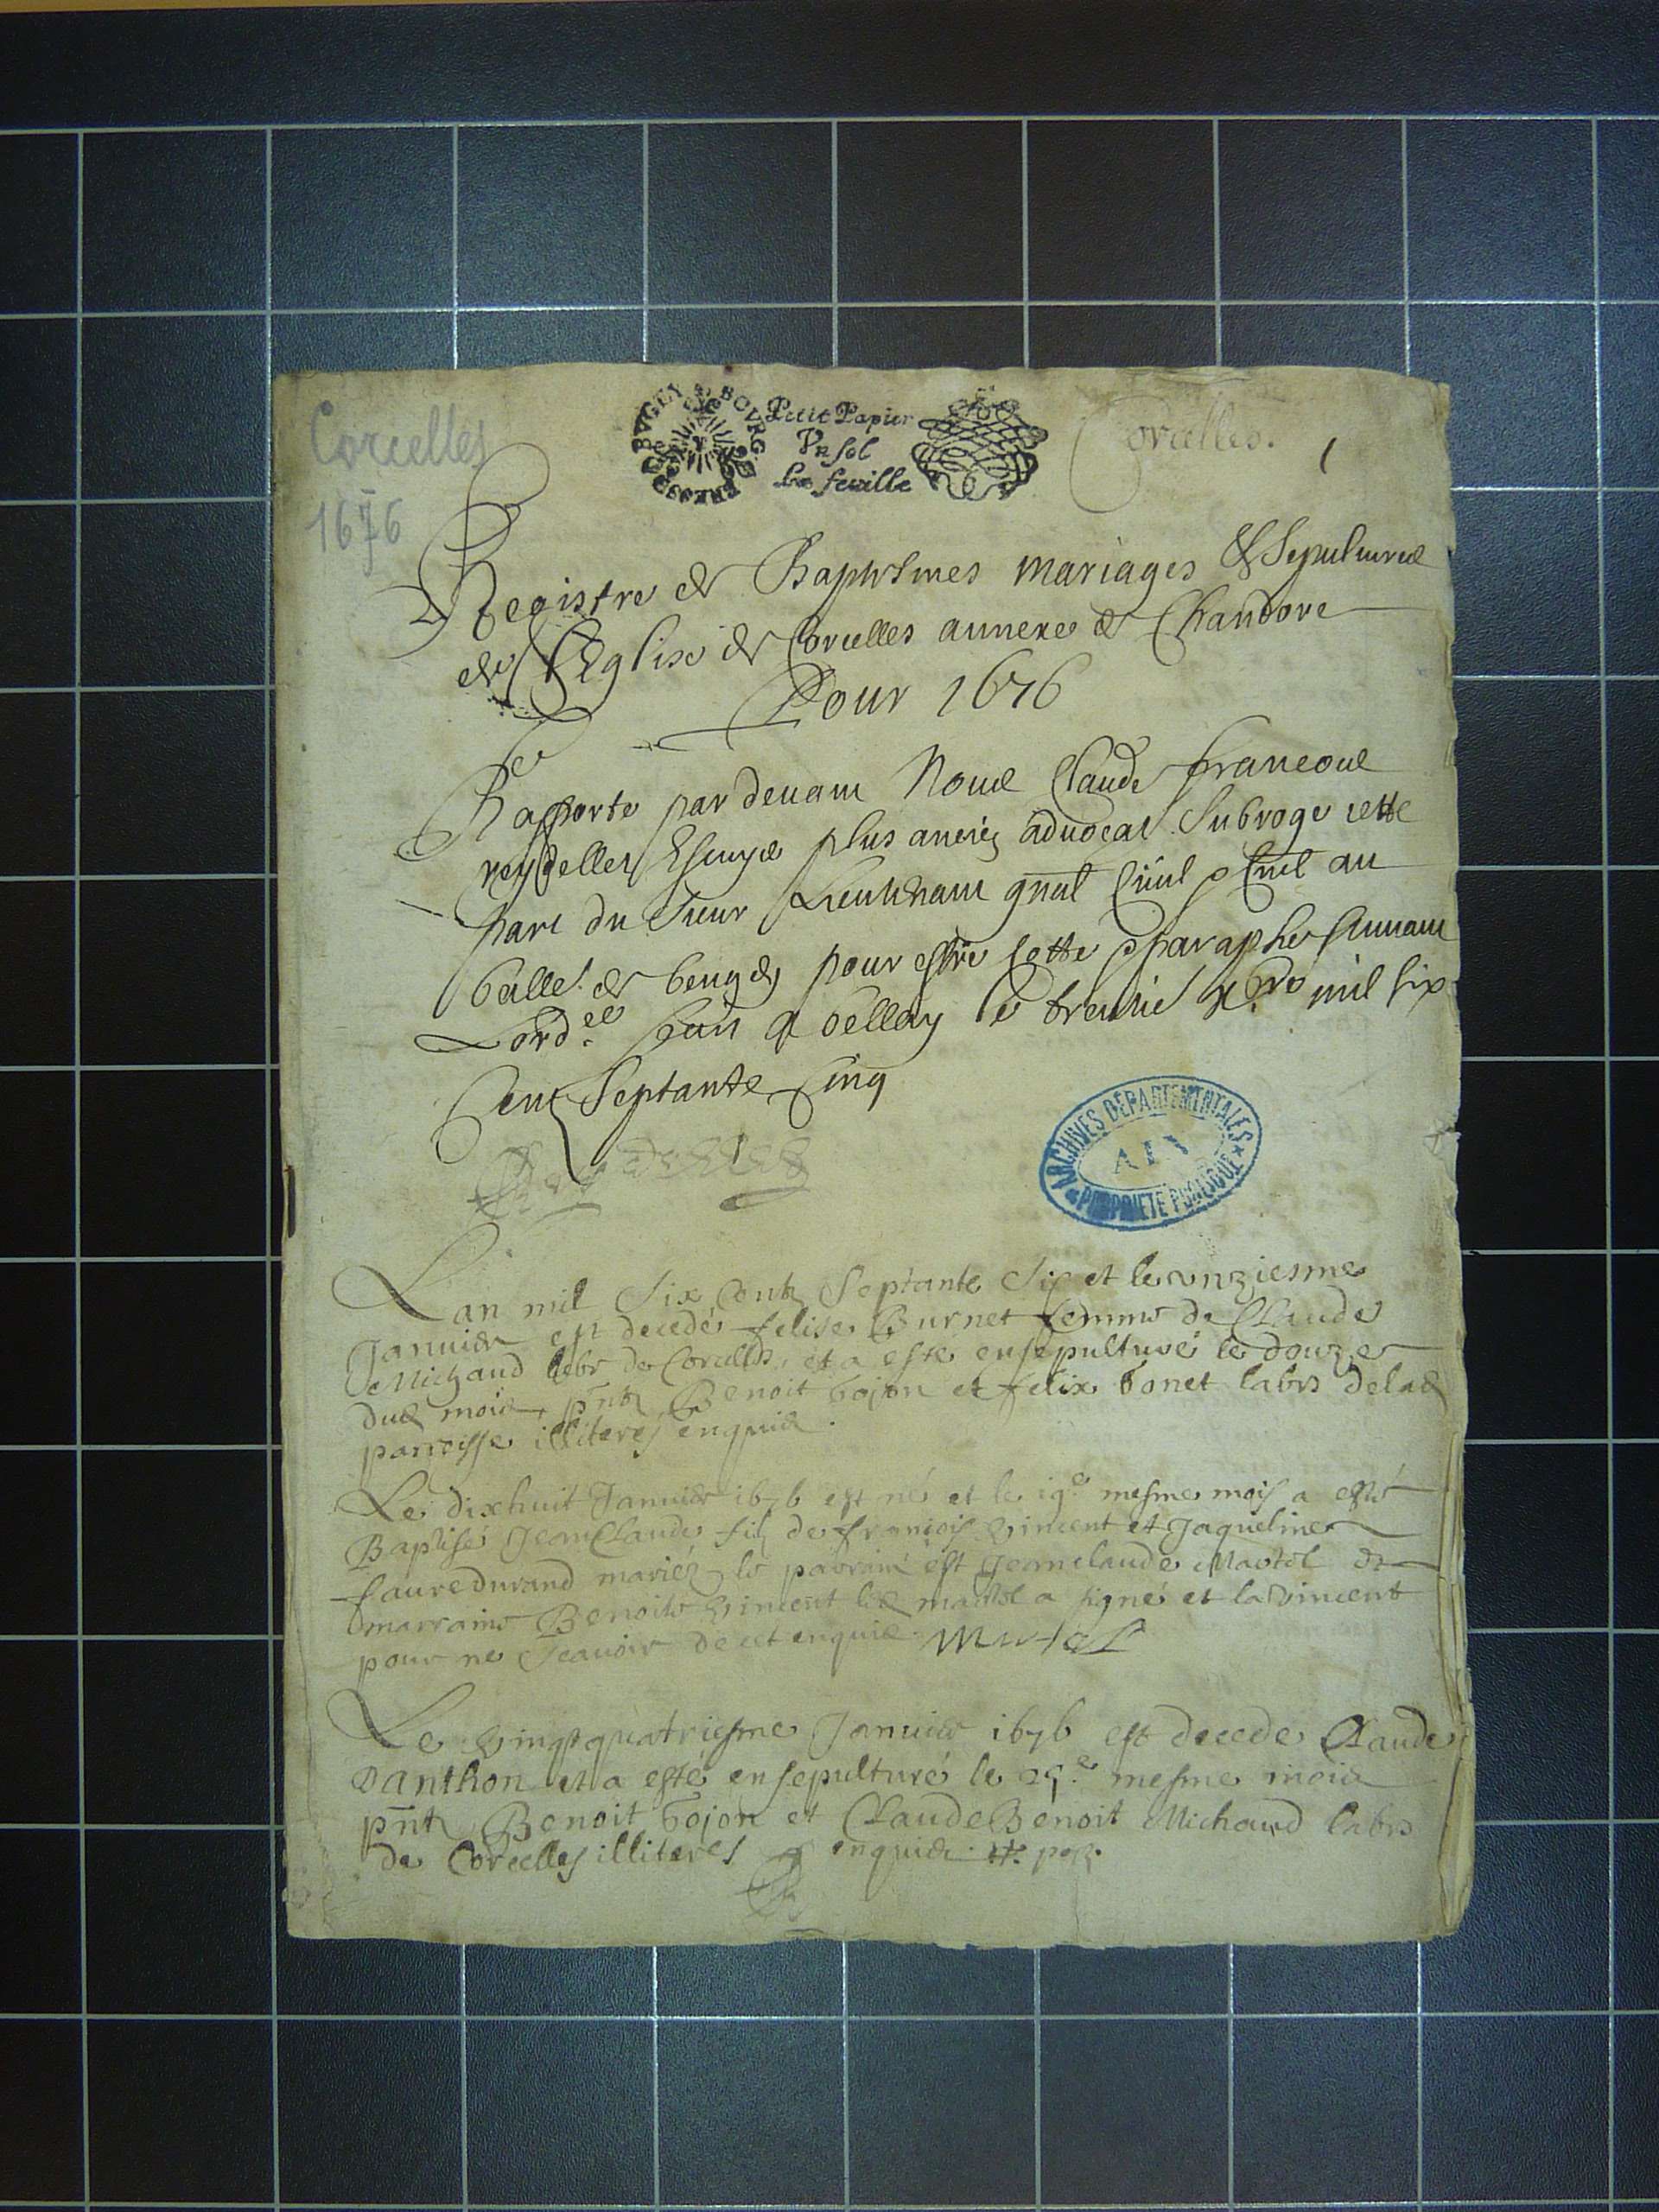 Corcelles
1676
BVGEY BOVRG
Petit Papier
Vn sol
La feuille
Corcelles.
1
Registre de Baptesmes mariages & Sepultures
de l'Eglise de Corcelles annexe de Chandore
Pour 1676
Raporte par devant Nous Claude francois
reydellet Escuyer plus ancien aduocat Subroge cette
part du sieur Lieutenant gnal Ciuil au
balle. de beugey pour estre cotte paraphe suiuant
Lord.ce fait a bellay le trente xbre mil six
Cent Septante Cinq
Reydellet
ARCHIVES DEPARTEMENTALES
AIN
PROPRIETE PUBLIQUE
Lan mil Six Centz Septante Six et le unziesme
Januier est decedé felise Burnet femme de Claude
Michaud labr de Corcelles, et a esté ensepulturé le douze
dud mois, pntz Benoit bojon et felix bonet labrs delad
parroisse illiteres enquis.
Le dixhuit Januier 1676 est né et le 19e mesme mois a esté
Baptisé Jean Claude filz de françois Vincent et Jaqueline
faure durand mariéz le parrain est Jeanclaude Martel et
marraine Benoite Vincent led martel a signé et la Vincent
pour ne scauoir de cet enquis. Martel
Le Vingtquatriesme Januier 1676 est decede Claude
Danthon et a esté ensepulturé le 25.e mesme mois
pntz Benoit bojon et Claude Benoit Michaud labrs
de Corcelles illiteres enquis.